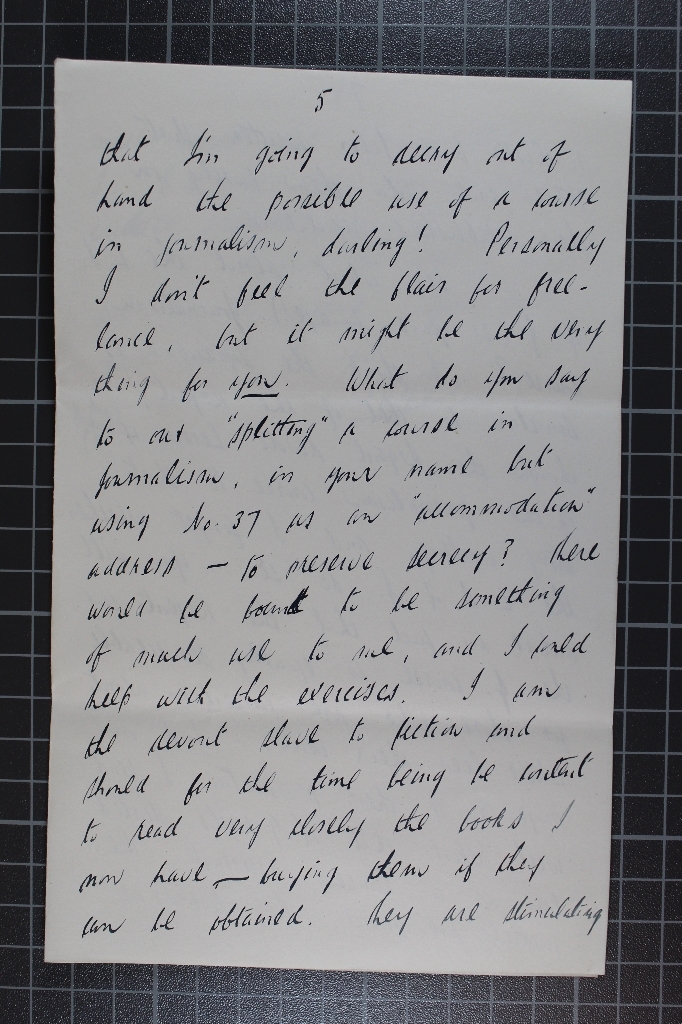 5
that I'm going to decry out of
hand the possible use of a course
in journalism, darling! Personally
I don't feel the flair for free-
lance, but it might be the very
thing for you. What do you say
to our "splitting" a course in
journalism, in your name but
using No. 37 as an "accommodation"
address — to preserve secrecy? There
would be bound to be something
of much use to me, and I could
help with the exercises. I am
the devout slave to fiction and
should for the time being be content
to read very closely the books I
now have — buying them if they
can be obtained. They are stimulating